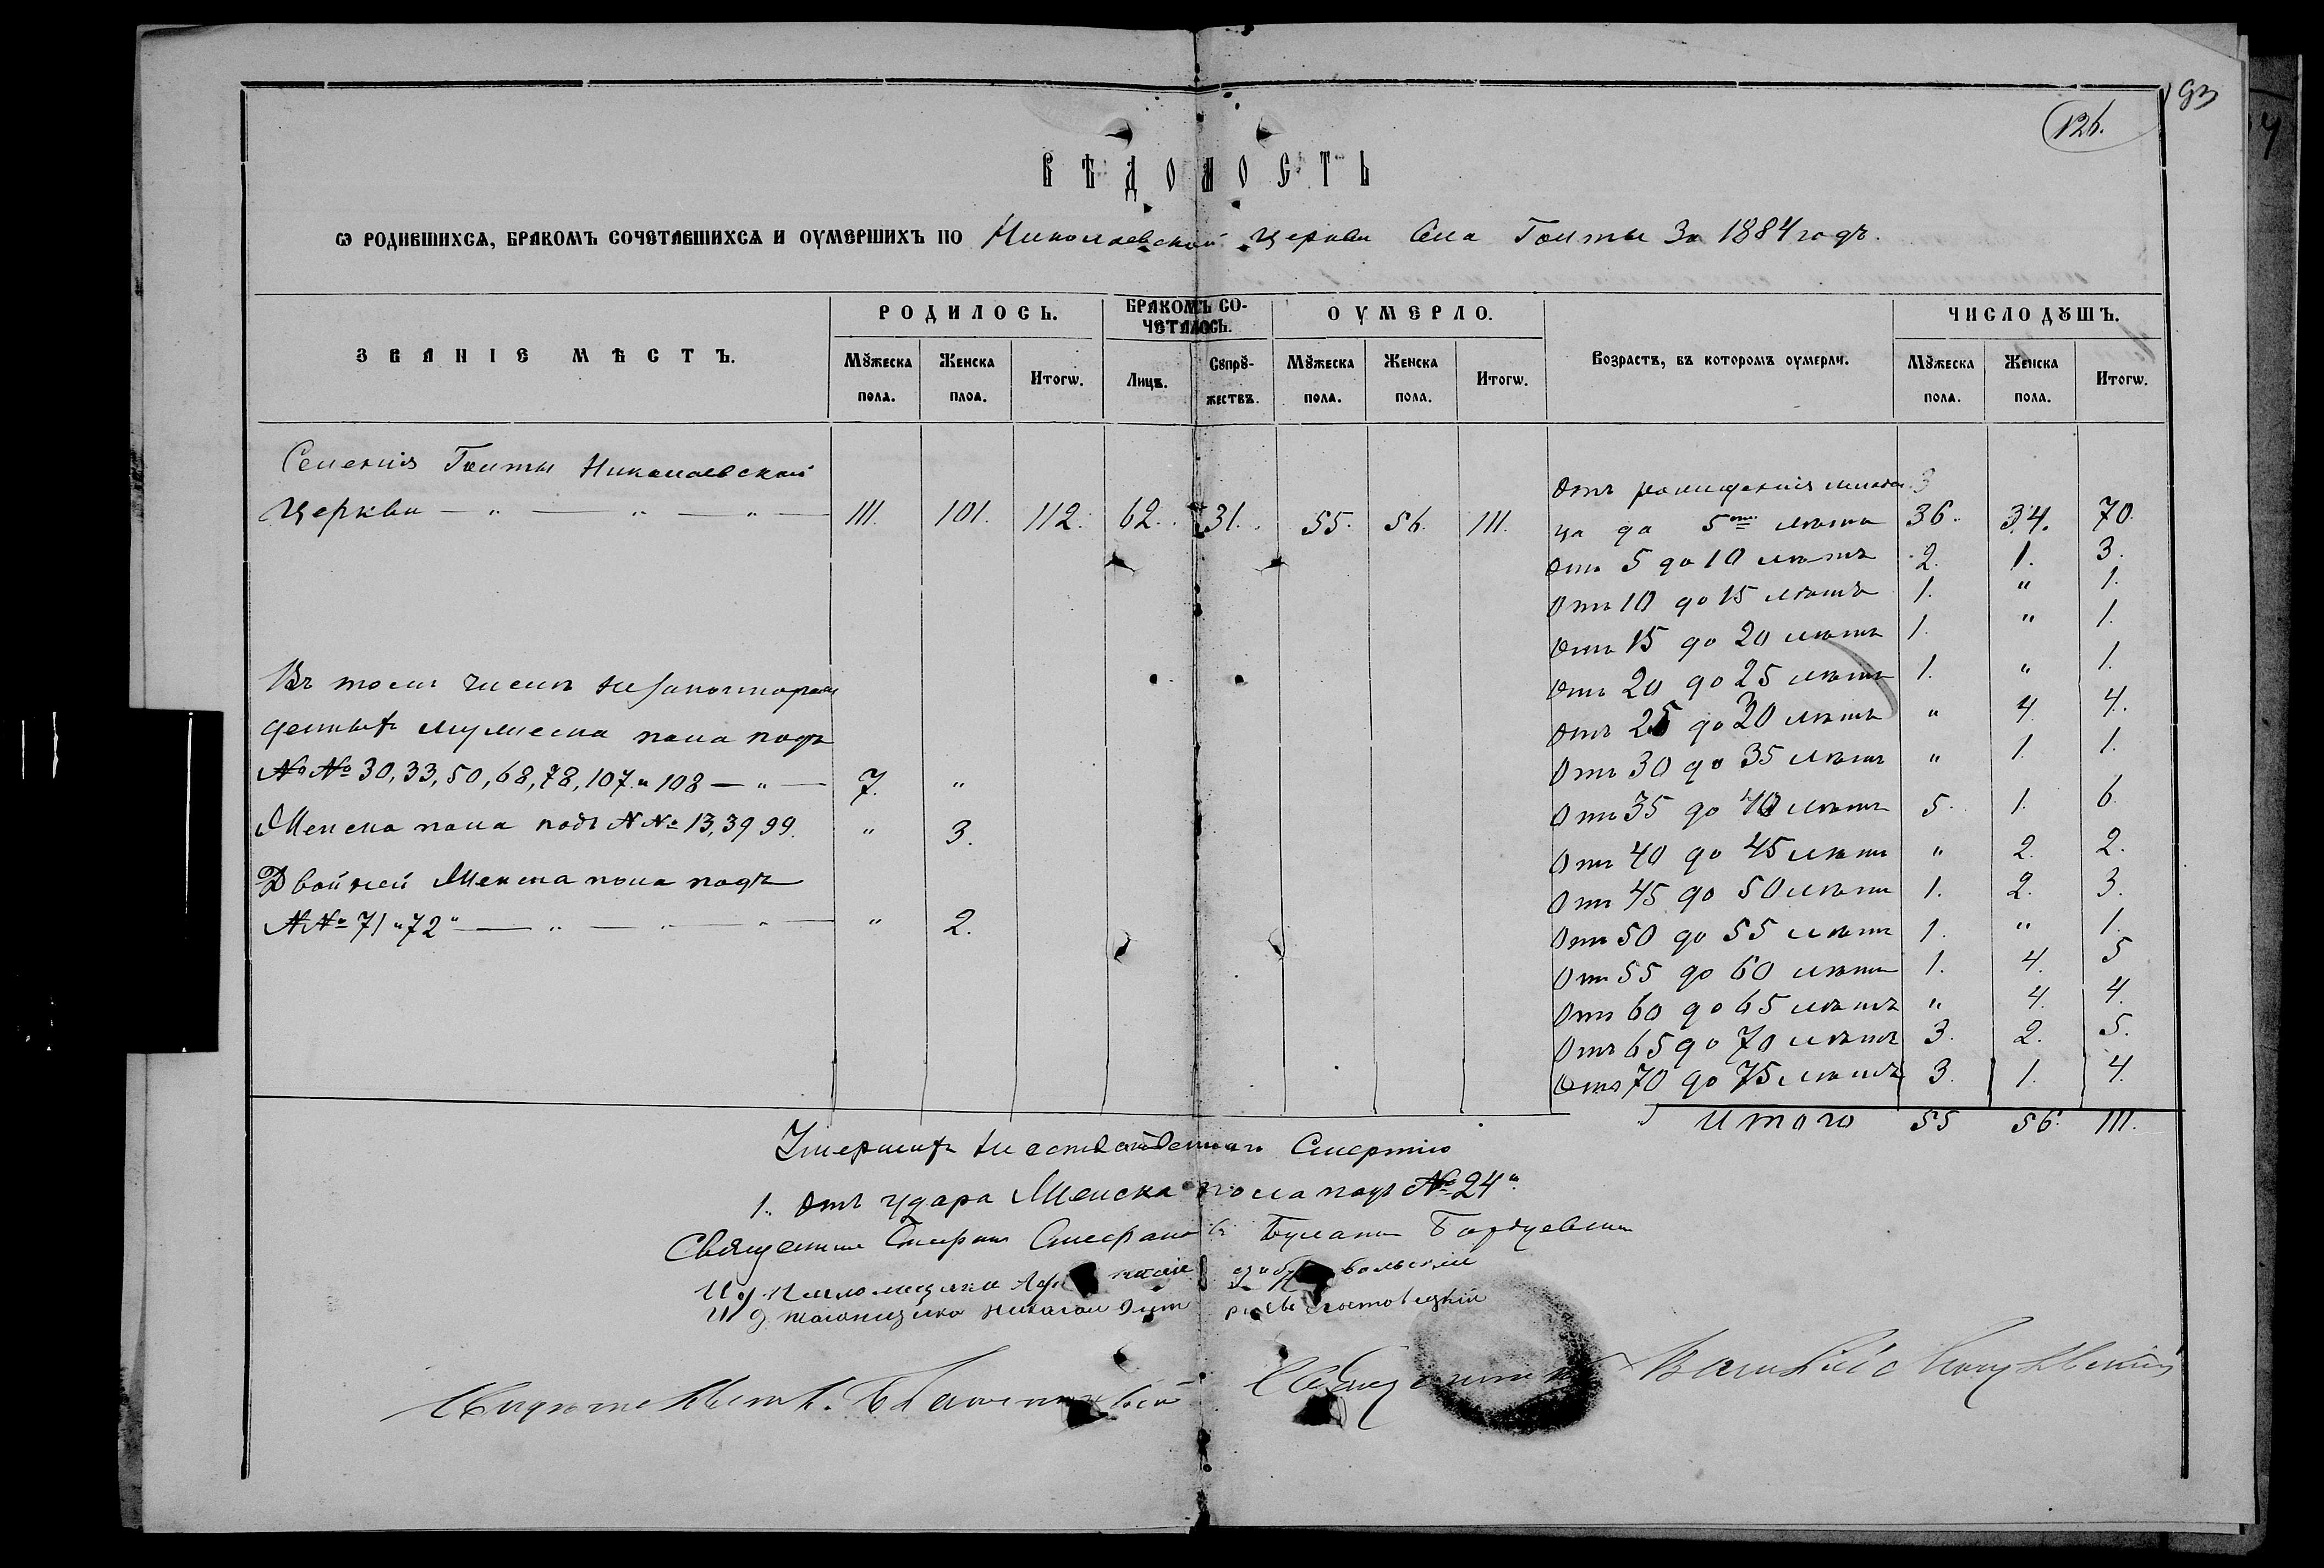 93
126.
ВѢДОМОСТЬ
Ѡ РОДИВШИХСѦ, БРАКОМЪ СОЧЕТАВШИХСѦ И ОУМЕРШИХЪ ПО Николаевской Церкви Села Гольты За 1884 годъ.
ЗВАНІЕ МѢСТЪ.
РОДИЛОСЬ.
БРАКОМЪ СОЧЕТАЛОСЬ.
ОУМЕРЛО.
Возрастъ, въ которомъ оумерли.
ЧИСЛО ДꙊШЪ.
МꙊжеска пола. Женска плоа. Итогѡ. Лицъ. СꙊпрꙊ-жествъ. МꙊжеска пола. Женска пола. Итогѡ. МꙊжеска пола. Женска пола. Итогѡ.
Селенія Гольты Николаевской
Церкви — " — " — " — 111. 101. 112. 62. 31. 55. 56. 111.
Отъ рожденія младен
ца до 5ти лѣтъ 36. 34. 70.
Отъ 5 до 10 лѣтъ 2. 1. 3.
Отъ 10 до 15 лѣтъ 1. " 1.
Отъ 15 до 20 лѣтъ 1. " 1.
Отъ 20 до 25 лѣтъ 1. " 1.
Отъ 25 до 30 лѣтъ " 4. 4.
Отъ 30 до 35 лѣтъ " 1. 1.
Отъ 35 до 40 лѣтъ 5. 1. 6.
Отъ 40 до 45 лѣтъ " 2. 2.
Отъ 45 до 50 лѣтъ 1. 2. 3.
Отъ 50 до 55 лѣтъ 1. " 1.
Отъ 55 до 60 лѣтъ 1. 4. 5
Отъ 60 до 65 лѣтъ " 4. 4.
Отъ 65 до 70 лѣтъ 3. 2. 5.
Отъ 70 до 75 лѣтъ 3. 1. 4.
Итого 55 56. 111.
Въ томъ числѣ незаконнорож
денныхъ мужеска пола подъ
№№ 30, 33, 50, 68, 78, 107 и 108 — " — 7. "
Женска пола подъ №№ 13, 39 99. " 3.
Двойней Женска пола подъ
№№ 71 и 72 — " — " — " — " 2.
Умершихъ неестественною Смертію
1. Отъ удара Женска пола подъ № 24
Священникъ
И д Псаломщика
И д Пономщика Николай
Священникъ Василій